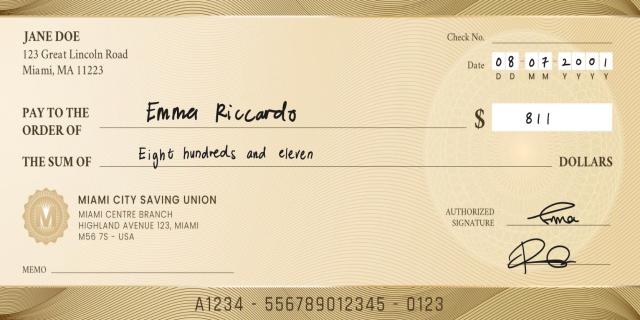 JANE DOE
123 Great Lincoln Road
Miami, MA 11223
Check No.
Date 08 07 2001
D D M M Y Y Y Y
PAY TO THE
ORDER OF Emma Riccardo $ 811
THE SUM OF Eight hundreds and eleven DOLLARS
M
MIAMI CITY SAVING UNION
MIAMI CENTRE BRANCH
HIGHLAND AVENUE 123, MIAMI
M56 7S - USA
AUTHORIZED
SIGNATURE
MEMO
A1234 - 556789012345 - 0123